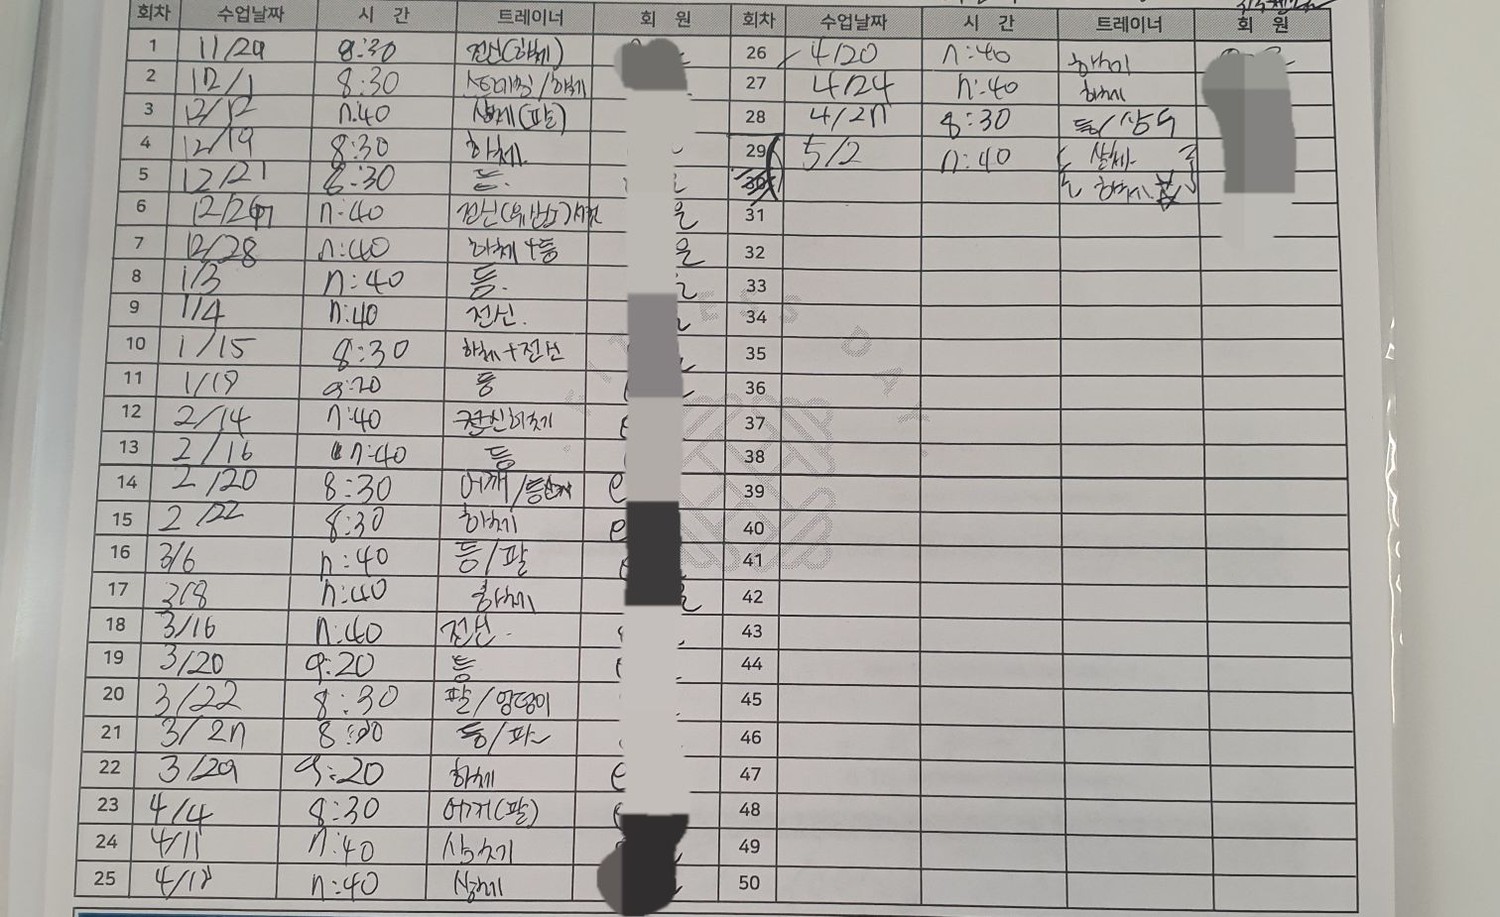 회차 수업날짜 시 간 트레이너 회 원
1 11/29 8:30 전신(하체)
2 12/1 8:30 하체
3 12/12 7:40 상체(팔)
4 12/19 8:30 하체
5 12/21 8:30 등.
6 7:40
7 12/28 7:40 하체+등
8 1/3 7:40 등.
9 1/4 7:40 전신.
10 1/15 8:30 하체+전신
11 1/18 9:20 등
12 2/14 7:40 전신하체
13 2/16 7:40 등
14 2/20 8:30 어깨/등
15 2/22 8:30 하체
16 3/6 7:40 등/팔
17 3/8 7:40 하체
18 3/16 7:40 전신.
19 3/20 9:20 등
20 3/22 8:30 팔/엉덩이
21 3/27 등/팔
22 3/29 9:20 하체
23 4/4 8:30 어깨(팔)
24 4/11 7:40 상체
25 4/18 7:40 상체
회차 수업날짜 시 간 트레이너 회 원
26 4/20 7:40 하체
27 4/24 7:40 하체
28 4/27 8:30 등/
29 5/2 7:40 상체
30 하체
31
32
33
34
35
36
37
38
39
40
41
42
43
44
45
46
47
48
49
50
FITNESS DAY